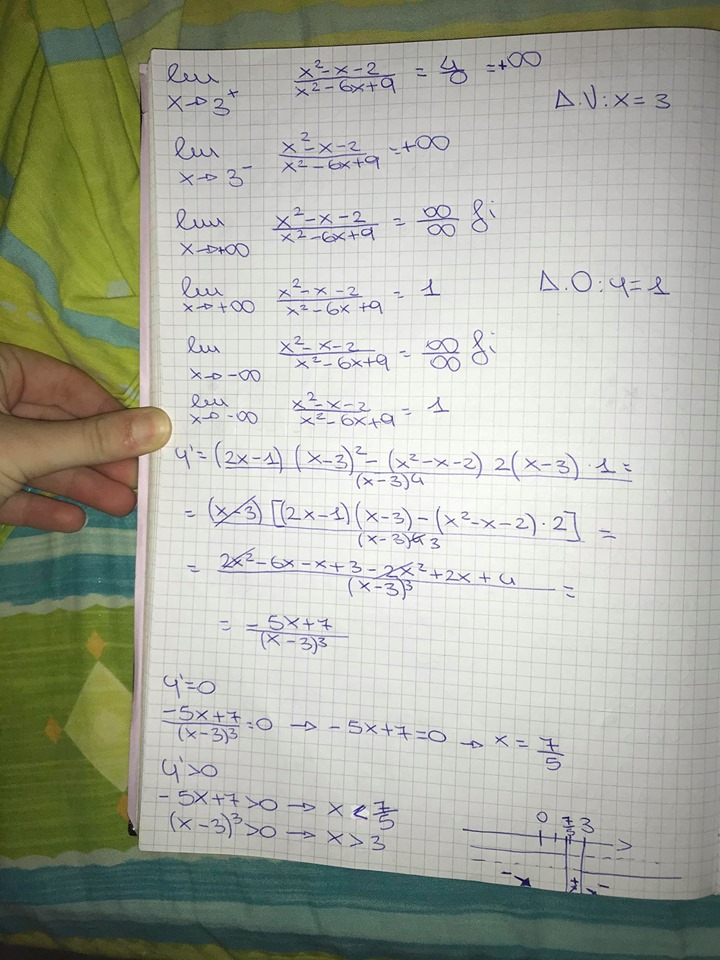 lim x→3⁺ (x²-x-2)/(x²-6x+9) = 4/0 = +∞
A.V: x=3
lim x→3⁻ (x²-x-2)/(x²-6x+9) = +∞
lim x→+∞ (x²-x-2)/(x²-6x+9) = ∞/∞ fi
lim x→+∞ (x²-x-2)/(x²-6x+9) = 1
A.O: y=1
lim x→-∞ (x²-x-2)/(x²-6x+9) = ∞/∞ fi
lim x→-∞ (x²-x-2)/(x²-6x+9) = 1
y' = ((2x-1)(x-3)² - (x²-x-2) 2(x-3)·1)/(x-3)⁴ =
= ((x-3)[(2x-1)(x-3) - (x²-x-2)·2])/(x-3)⁴ ³ =
= (2x²-6x-x+3-2x²+2x+4)/(x-3)³ =
= (-5x+7)/(x-3)³
y'=0
(-5x+7)/(x-3)³ = 0 → -5x+7=0 → x = 7/5
y'>0
-5x+7>0 → x < 7/5
(x-3)³>0 → x>3
0 7/5 3
- + -